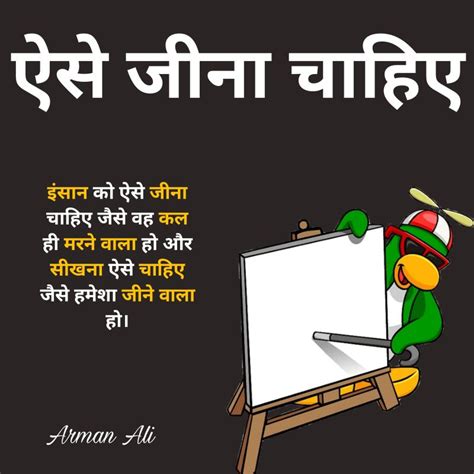 ऐसे जीना चाहिए
इंसान को ऐसे जीना
चाहिए जैसे वह कल
ही मरने वाला हो और
सीखना ऐसे चाहिए
जैसे हमेशा जीने वाला
हो।
Arman Ali